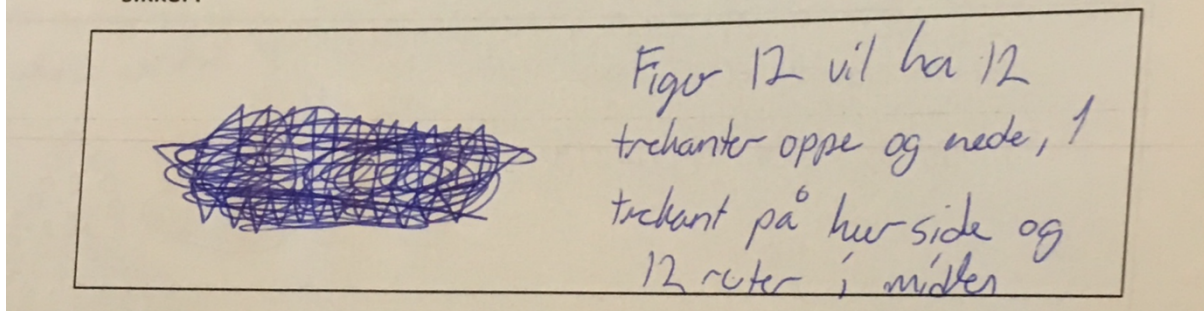 Figur 12 vil ha 12
trekanter oppe og nede, 1
trekant på hver side og
12 ruter i midten